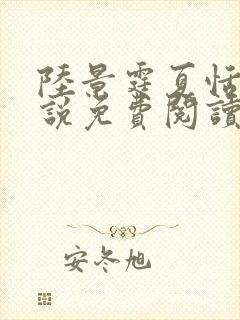 陸景霆夏恬
說免費閱讀
安冬旭